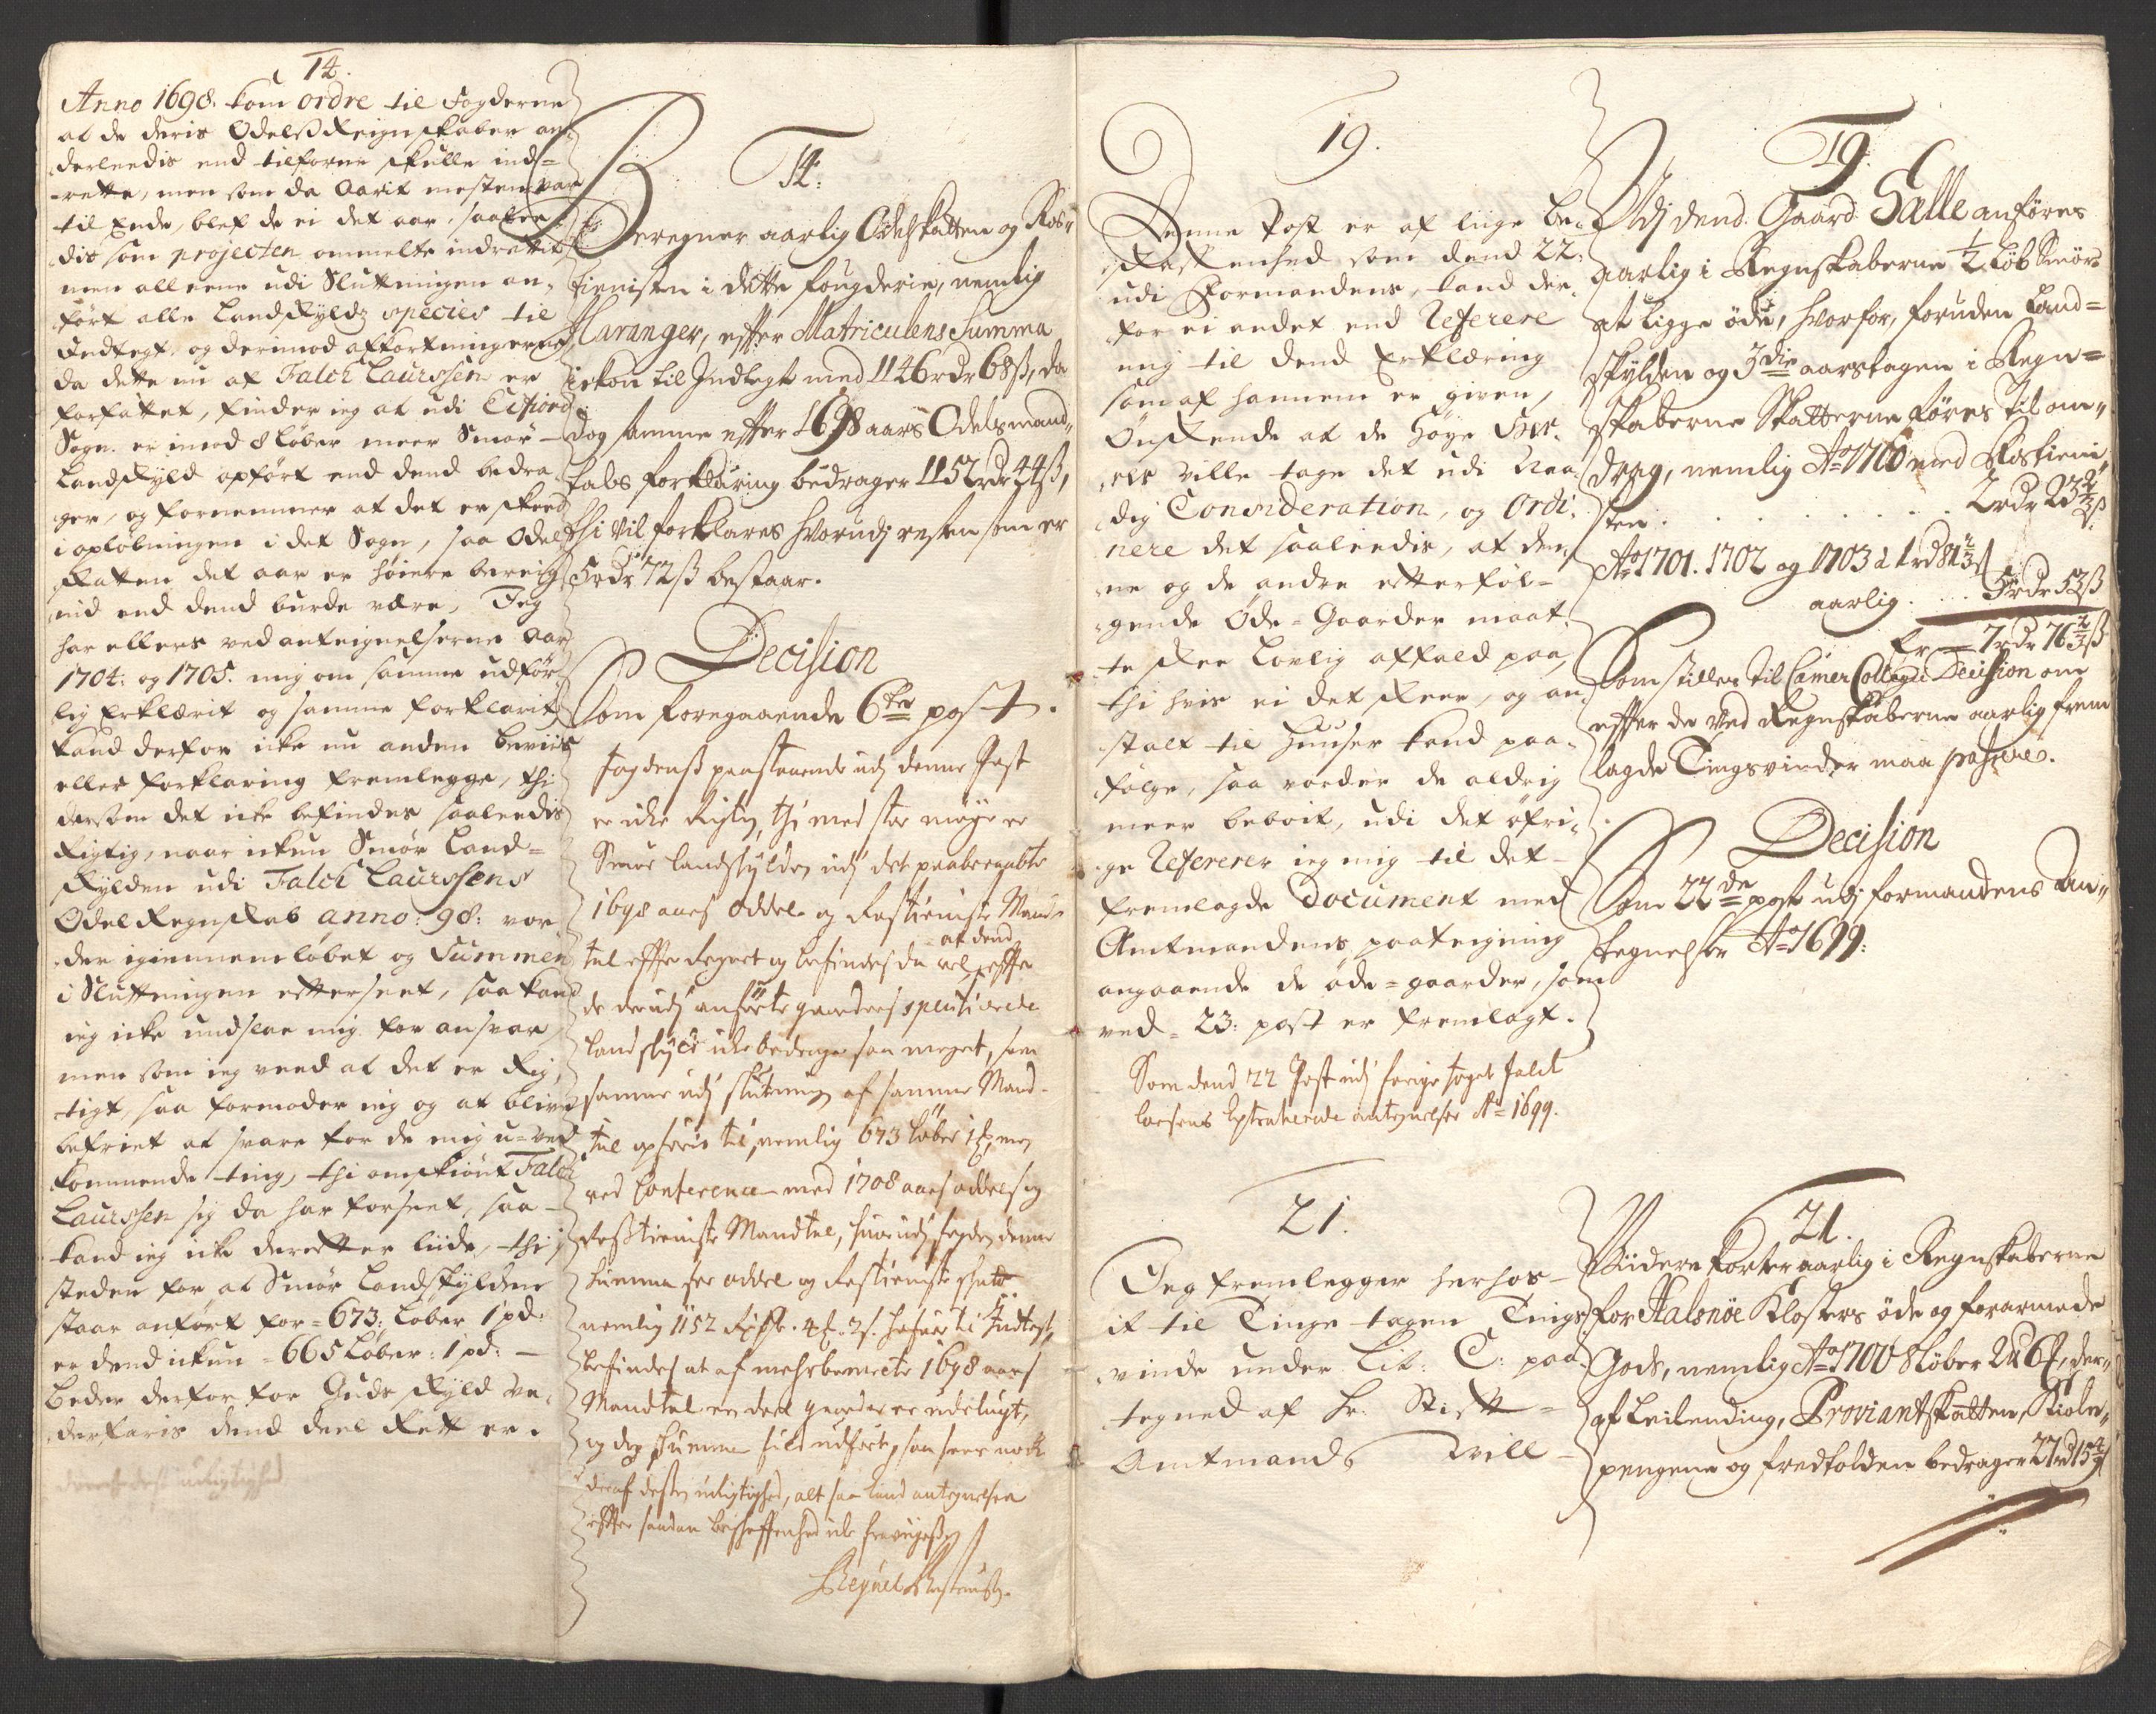 14.
Anno 1698. kom ordre til Fogderne
at de deris Odelsz Reignskaber an-
derleedis end tilforne skulle ind=
rette, men som da Aarit mesten var
til Ende, blef de ei det aar saalee
dis som projecten ommelte indrettit,
men alleene udi Slutningen an-
ført alle Landskyldz species til
Indtegt, og derimod afkortningerne,
da dette nu af Falch Laurssen er
forfattet, finder ieg at udi
Sogn er imod 8 Løber meer Smør-
Landskyld opført end dend bedra
ger, og fornemmer at det er skeed
i opløbningen i det Sogn, saa Odel
skatten det aar er høiere bereig
nid end dend burde være, Jeg
har ellers ved anteignelserne Aar
1704: og 1705. mig om samme udfør
lig Erklærit og samme forklarit,
kand derfor icke nu anden beviis
eller forklaring fremlegge, thi
dersom det icke befindes saaleedis
Rigtig, naar ickun Smør Land=
skylden udi Falch Laurssens
Odel Regnskab anno: 98: vor
der igiennemløbet og Summen
i Sluttningen efterseet, saa kand
ieg icke undslaae mig for ansvar,
men som ieg veed at det er Rig
tigt, saa formoder ieg og at blive
befriet at svare for de mig u-ved
kommende ting, thi omskiønt Falch
Laurssen sig da har forseet, saa-
kand ieg icke derefter liide, thi i
steden for at Smør Landskyldene
staar anført for = 673: Løber 1 pd:
er dend ickun = 665 Løber: 1 pd: -
Beder derfor for Guds skyld ve-
derfaris dend deel Rett er.
14:
Beregner aarlig Odelskatten og Ros-
tienisten i dette fougderie, nemlig
Hardanger, efter Matriculens Summa
ickon til Indtegt med 1146 rdr 68 ß, da
dog samme efter 1698 aars Odelsmand-
tals forklaring bedrager 1152 rdr 44 ß,
thi vil forklares hvorudj resten som er
5 rdr 72 ß bestaar.
Decision
Som foregaaende 6te post.
fogdensz paastaaende udj denne Post
er icke Rigtig, thi med stor møye er
Smør landskylden udj det paaberaabte
1698 aars oddel- og Rostieniste Mand-
tal efter Regnet og befindes da vel at dend efter
de derudj anførte gaarders specificerede
landskyld icke bedrager saa meget, som
samme udj slutning af samme Mand-
tal opføris til, nemlig 673 løber 1 , men
ved Conference med 1708 aars oddels og
Rosztieniste Mandtal, hvorudj fogden denne
Summa for oddel og Rostieniste skatt
nemlig 1152 . 4 . 2 s. hafver til Indtegt,
befindes at af mehrbemeelte 1698 aars
Mandtal een deel gaarder er udelugt,
og dog summen fuld udført, saa sees nock
deraf desen urigtighed, alt saa kand antegnelsen
efter saadan beskaffenhed icke
19.
Denne Post er af liige be-
skaffenhed som dend 22.
udi Formandens, kand der
for ei andet end Referere
mig til dend Erklæring
som af hannem er given,
Ønskende at de Høye Her-
rer ville tage det udi Naa
dig Consideration, og Ordi-
nere det saaleedis, at den
ne og de andre efterføl-
gende Øde-Gaarder maat
te skee Lovlig affald paa,
thi hvis ei det skeer, og an
stalt til Huuser kand paa-
følge, saa vorder de aldrig
meer beboit, udi det øfri-
ge Refererer ieg mig til det-
fremlagde Document med
Amtmandens paateigning
angaaende de øde-gaarder, som
ved = 23: post er fremlagt.
Som dend 22 Post udj forige foget Falch
Lorsens Extraherede antegnelser Ao 1699.
21.
Jeg fremlegger herhos-
it til Tinge tagen Tings
vinde under Lit: C: paa
tegned af Hr. Stift-
Amtmand Vill-
19.
Udj dend Gaard Sælle anføres
aarlig i Regnskaberne ½ Løb Smør
at ligge øde, hvorfor, foruden Land=
skylden og 3die aarstagen i Regn=
skaberne Skatterne føres til om-
drag, nemlig Ao 1700 med Rostieni-
sten . . . . . . . 2 rdr 23 ⅔ ß
Ao 1701. 1702 og 1703 à 1 rd 81 ⅔ s
aarlig . . . 5 rdr 53 ß
Er = 7 rdr 76 ⅔ ß
Som stilles til Camer Collegii Decision om
efter de ved Regnskaberne aarlig frem
lagde Tingsvinder maa passere.
Decision
Som 22de post udj formandens An-
tegnelser Ao 1699:
21.
Viidere korter aarlig i Regnskaberne
for Halsnøe Klosters øde og forarmede
Gods, nemlig Ao 1700 8 løber 2 6 , der-
af Leilending, Proviantskatten,
pengene og fredtolden bedrager 27 rd 15